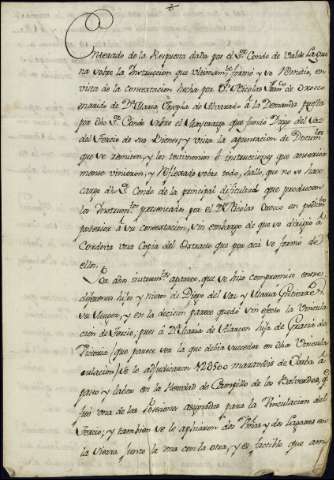 Enterado de la Respuesta dada por el Sr. Conde de Valde
na sobre la Instruccion que ultimamte. formó y se Remitió, en
vista de la Contestacion hecha por Dn. Nicolas de Orozco
marido de Da. Maria Josepha de Alvarado à la Demanda puesta
por dho Sr. Conde sobre el Mayorazgo que fundó Diego del Vaz
del Tercio de sus Bienes; y vista la apuntacion de Docum.tos
que se remiten, y los testimonios é instrucciones que anterior
mente vinieron; y Reflexado sobre todo, hallo, que no se hace
cargo el Sr. Conde de la principal dificultad que producen
los Instrum.tos presentados por el Dn. Nicolas Orozco con
posterior à su contestacion, sin embargo de que se dirijió à
Cordova una Copia del Extracto que por acà se formó de
ellos.
En dhos instrum.tos aparece, que se hizo compromiso entre
diferentes hijos y nietos de Diego del Vaz y Maria Gutierrez
su Muger; y en la decision parece quedó sin efecto la Vincula
cion de Tercio; pues à Da. Maria de hija de Garcia de
Victoria (que parece era la que debia suceder en dha Vincula
cion) se le adjudicaron 42500 maravedis de Renta de
pan, y labor en la Heredad de Campillo de
fue una de las posesiones asignadas para la Vinculacion del
Tercio; y tambien se le aplicaron dos Viñas y dos Lagares en
la sierra junto la una con la otra, y es factible que am